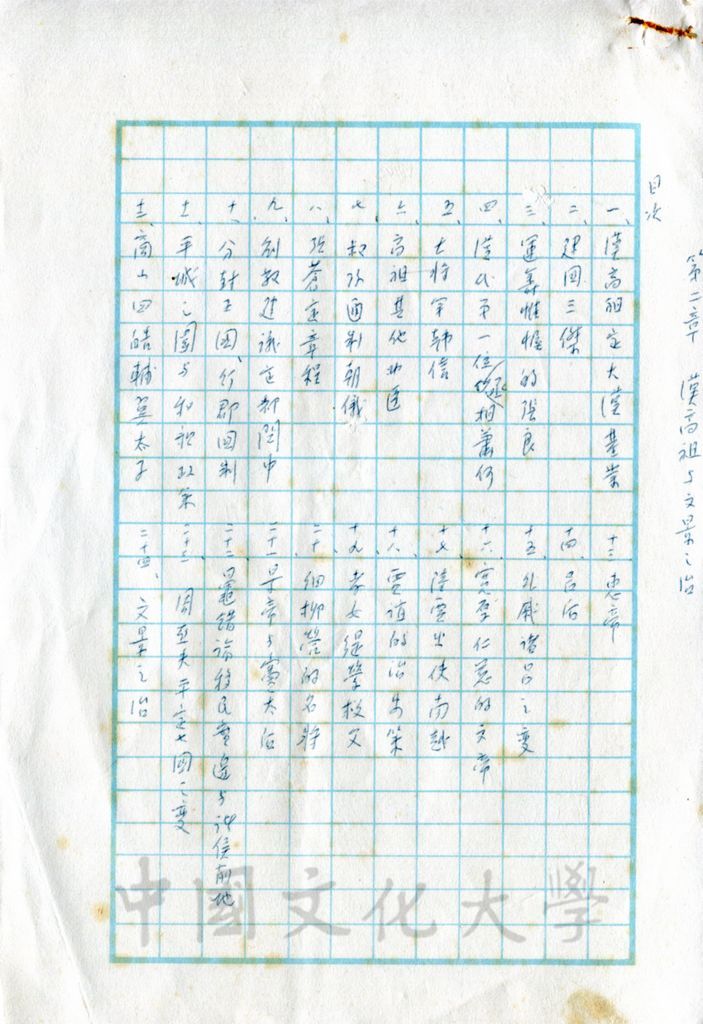 第二章 漢高祖与文景之治
目次
一、漢高祖立大漢基業
二、建國三傑
三、運籌帷幄的張良
四、漢代第一位丞相蕭何
五、大將軍韓信
六、高祖其他功臣
七、叔孫通制朝儀
八、張蒼定章程
九、劉敬建議定都関中
十、分封王國、行郡國制
十一、平城之圍与和親政策
十二、商山四皓輔翼太子
十三、惠帝
十四、呂后
十五、外戚諸呂之變
十六、寬厚仁慈的文帝
十七、陸賈出使南越
十八、賈誼的治安策
十九、孝女緹縈救父
二十、細柳營的名將
二十一、景帝与竇太后
二十二、鼂錯論移民實邊与諸侯削地
二十三、周亞夫平定七國之變
二十四、文景之治
中國文化大學